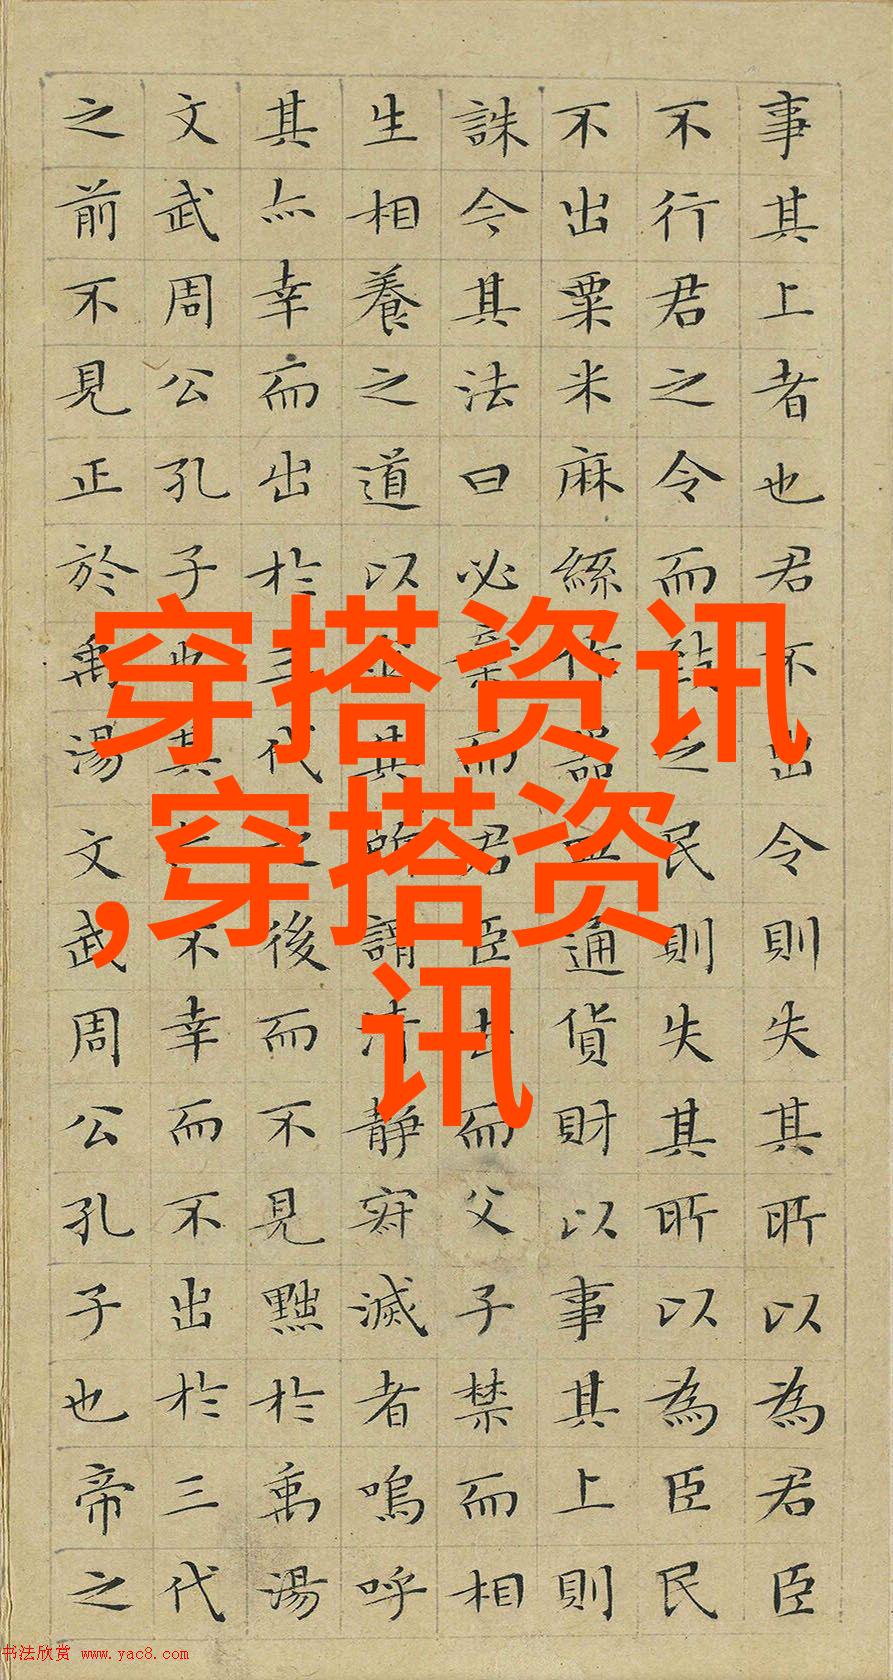 事其上者也君不出令則失其所以為君臣
不行君之令而致之民則失其所以為臣民
不出粟米麻絲作器皿通貨財以事其上則
誅今其法曰必棄而君臣去而父子禁而相
生相養之道以求其所謂清靜寂滅者嗚呼
其亦幸而出於三代之後而不見黜於禹湯
文武周公孔子也其亦不幸而不出於三代
之前不見正於禹湯文武周公孔子也帝之
穿搭资讯
,穿搭资
讯
书法欣赏 www.yac8.com